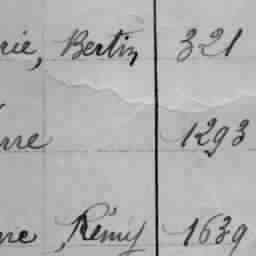 rie, Bertin 321
rre 1293
rre, Rémy 1639